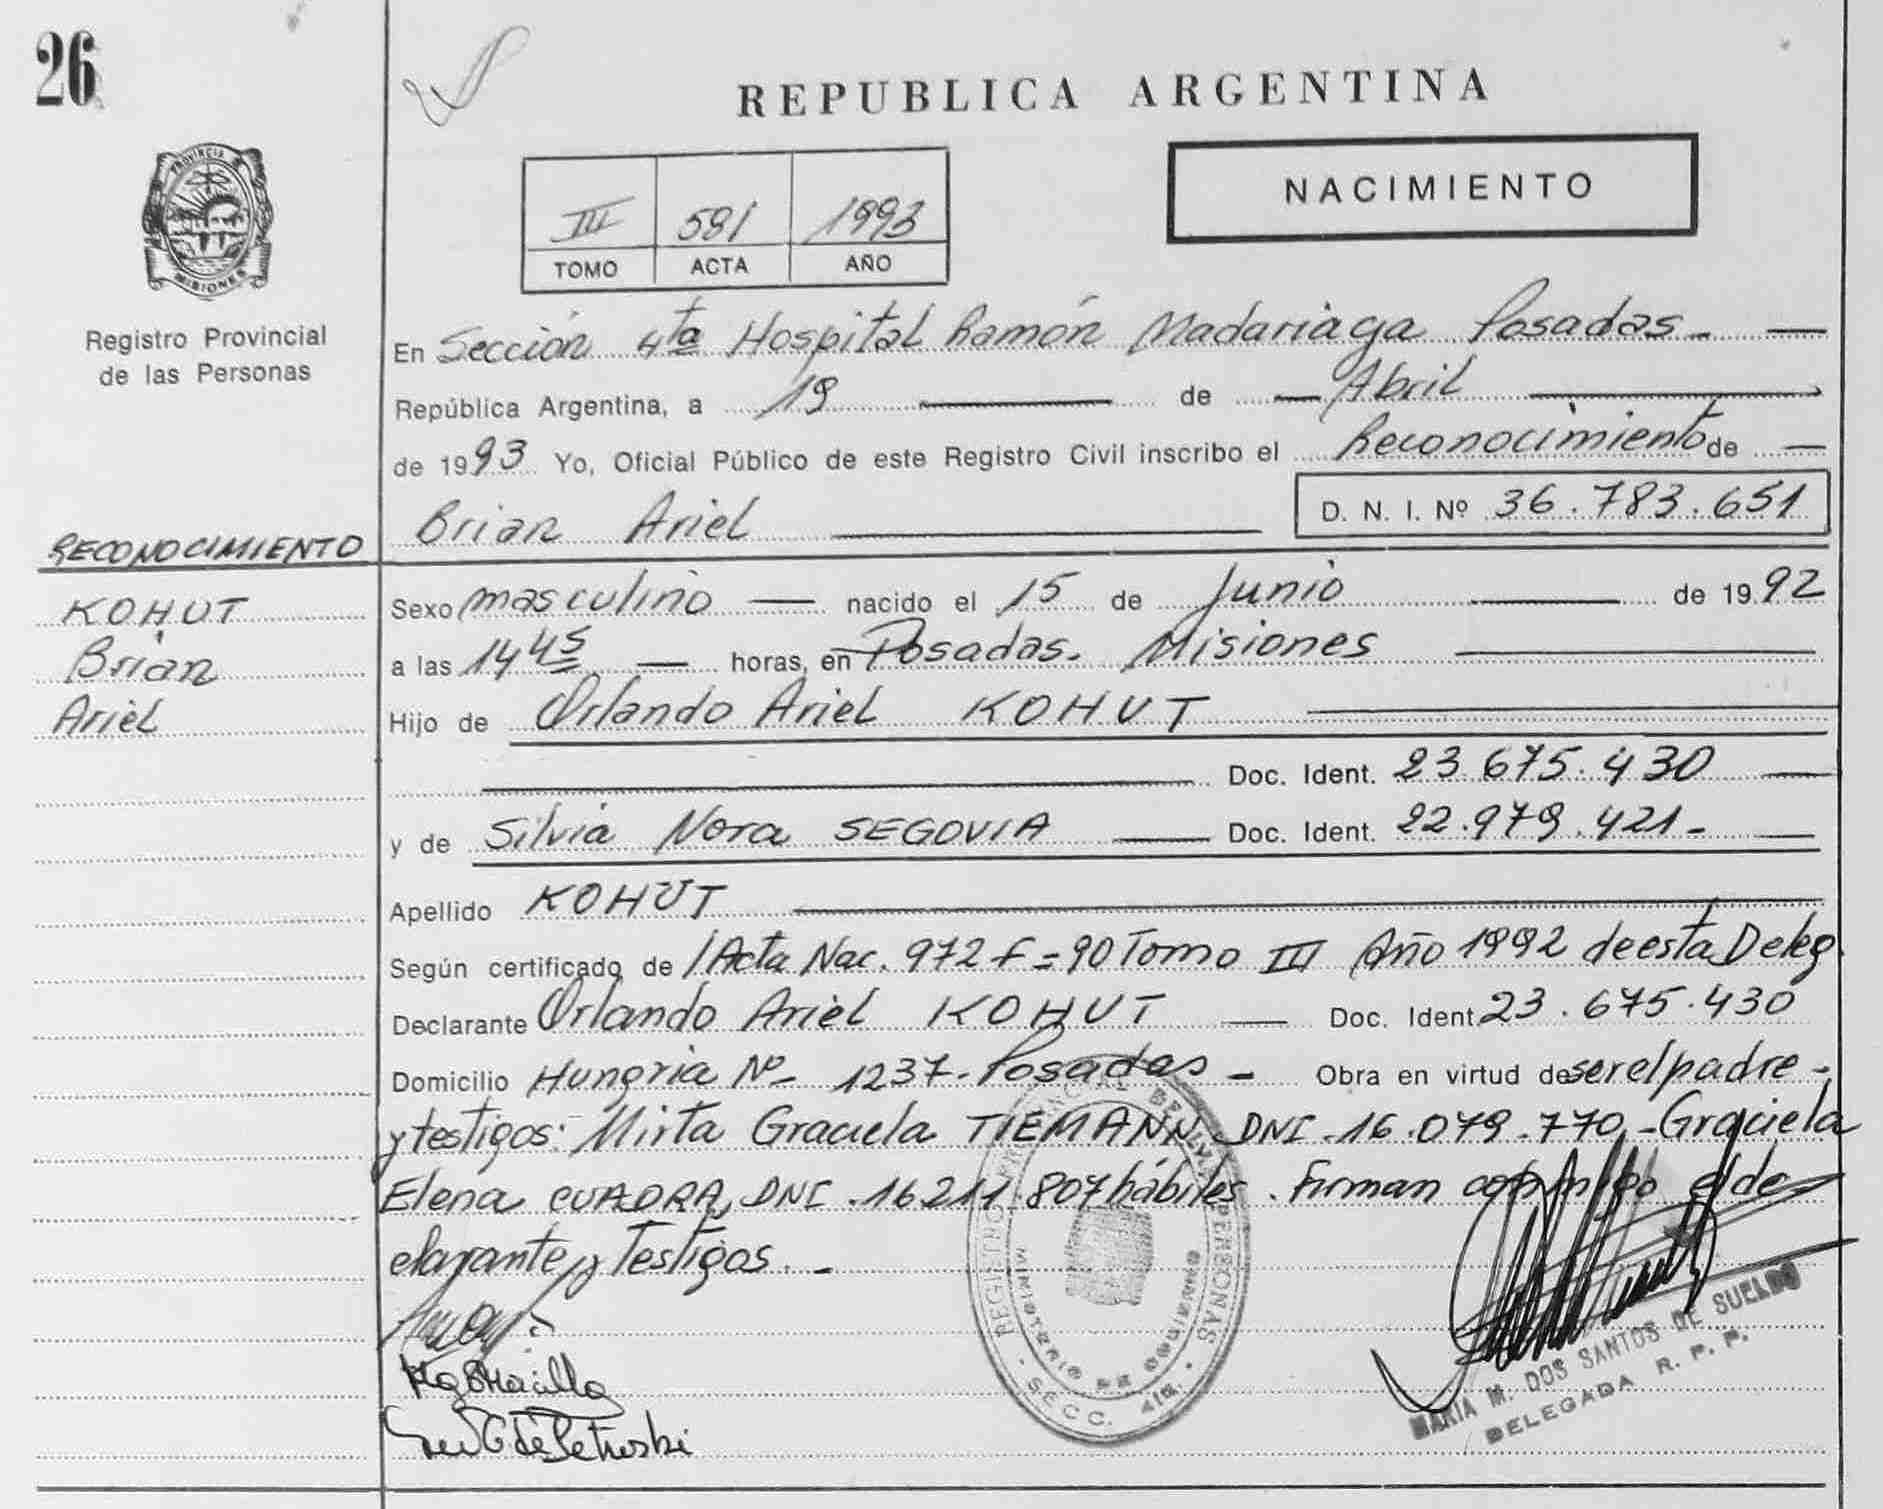 26
REPUBLICA ARGENTINA
PROVINCIA DE MISIONES
III 581 1993
TOMO ACTA AÑO
NACIMIENTO
Registro Provincial
de las Personas
En Sección 4ta Hospital Ramón Madariaga Posadas.
República Argentina, a 19 de Abril
de 1993 Yo, Oficial Público de este Registro Civil inscribo el Reconocimiento de
Brian Ariel D. N. I. Nº 36.783.651
RECONOCIMIENTO
KOHUT
Brian
Ariel
Sexo masculino nacido el 15 de Junio de 1992
a las 14 45 horas, en Posadas. Misiones
Hijo de Orlando Ariel KOHUT
Doc. Ident. 23.675.430
y de Silvia Nora SEGOVIA Doc. Ident. 22.979.421-
Apellido KOHUT
Según certificado de / Acta Nac. 972 F=90 Tomo III Año 1992 de esta Deleg.
Declarante Orlando Ariel KOHUT Doc. Ident. 23.675.430
Domicilio Hungria Nº 1237. Posadas - Obra en virtud de ser el padre -
y testigos: Mirta Graciela TIEMANN DNI.16.079.770 - Graciela
Elena CUADRA DNI.16.211.807 hábiles. Firman conmigo el de
clarante y Testigos. -
REGISTRO PROVINCIAL DE LAS PERSONAS
MINISTERIO DE GOBIERNO
SECC. 4ta.
MARIA M. DOS SANTOS DE SUELDO
DELEGADA R. P. P.